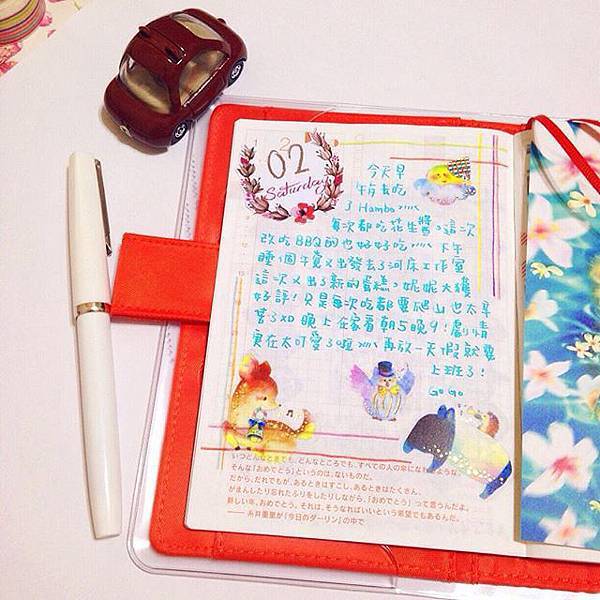 2
02
Saturday
今天早
午去吃
了Hambo
每次都吃花生醬。這次
改吃BBQ的也好好吃 下午
睡個午覺又出發去了河床工作室
這次又出了新的蛋糕。妮妮大獲
好評！只是每次吃都要爬山也太辛
苦了XD 晚上在家看朝5晚9！劇情
實在太可愛了啦 再放一天假就要
上班了！
GoGo
いつどんなときでも、どんなところでも、すべての人の傘になれるような、
そんな「おめでとう」というのは、ないものだ。
だから、だれでもが、あるときはすこし、あるときはたくさん、
がまんしたり忘れたふりをしたりしながら、「おめでとう」って言うんだよ。
新しい年、おめでとう。それは、そうなればいいという希望でもあるんだ。
―― 糸井重里が『今日のダーリン』の中で